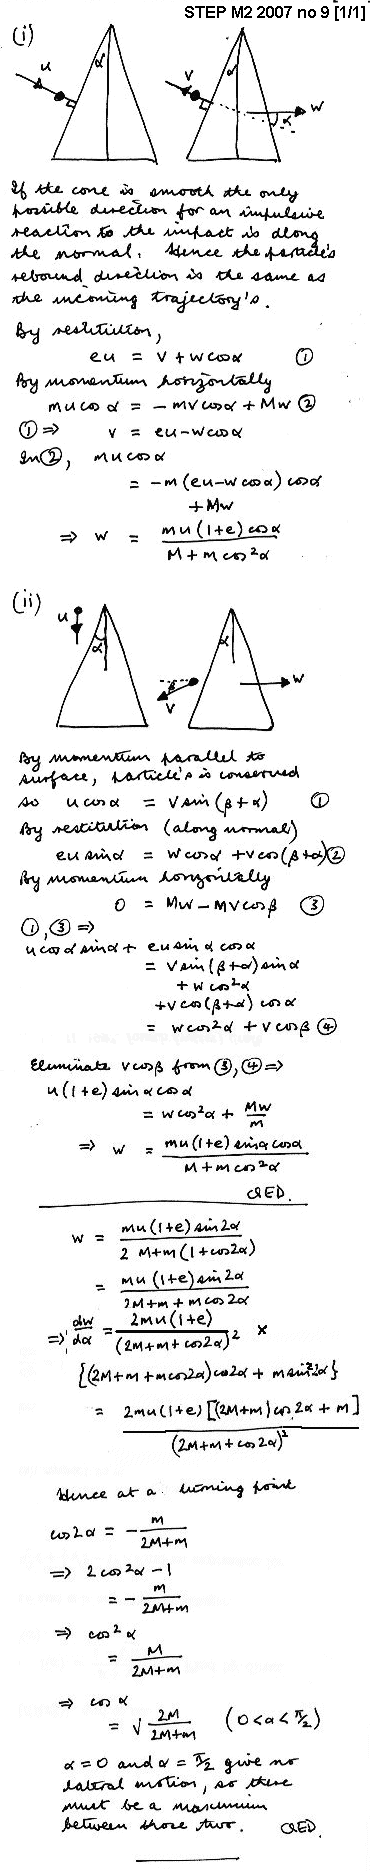 STEP M2 2007 no 9 [1/1]
(i)
u α v α w α
If the cone is smooth the only
possible direction for an impulsive
reaction to the impact is along
the normal. Hence the particle's
rebound direction is the same as
the incoming trajectory's.
By restitution,
eu = v + w cos α ①
By momentum horizontally
mu cos α = - mv cos α + Mw ②
① ⇒ v = eu - w cos α
In ②, mu cos α
= -m (eu - w cos α) cos α
+ Mw
⇒ w = mu (1+e) cos α / M + m cos² α
(ii)
u α β v α w
By momentum parallel to
surface, particle's is conserved
so u cos α = v sin (β + α) ①
By restitution (along normal)
eu sin α = w cos α + v cos (β + α) ②
By momentum horizontally
0 = Mw - mv cos β ③
①, ③ ⇒
u cos α sin α + eu sin α cos α
= v sin (β + α) sin α
+ w cos² α
+ v cos (β + α) cos α
= w cos² α + v cos β ④
Eliminate v cos β from ③, ④ ⇒
u (1+e) sin α cos α
= w cos² α + Mw / m
⇒ w = mu (1+e) sin α cos α / M + m cos² α
QED.
w = mu (1+e) sin 2α / 2M + m (1 + cos 2α)
= mu (1+e) sin 2α / 2M + m + m cos 2α
⇒ dw/dα = 2mu (1+e) / (2M + m + cos 2α)² ×
{(2M + m + m cos 2α) cos 2α + m sin² 2α}
= 2mu (1+e) [(2M + m) cos 2α + m] / (2M + m + cos 2α)²
Hence at a turning point
cos 2α = - m / 2M + m
⇒ 2 cos² α - 1
= - m / 2M + m
⇒ cos² α
= M / 2M + m
⇒ cos α
= √ 2M / 2M + m (0 < α < π/2)
α = 0 and α = π/2 give no
lateral motion, so there
must be a maximum
between those two. QED.